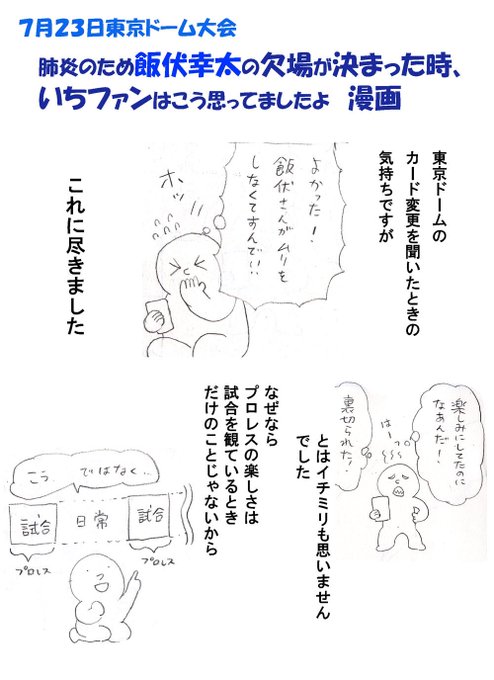 7月23日東京ドーム大会
肺炎のため飯伏幸太の欠場が決まった時、
いちファンはこう思ってましたよ 漫画
東京ドームの
カード変更を聞いたときの
気持ちですが
よかった!
飯伏さんがムリを
しなくてすんで!!
ホッ
これに尽きました
楽しみにしてたのに
なあんだ!
はーっ
裏切られた!
とはイチミリも思いません
でした
なぜなら
プロレスの楽しさは
試合を観ているとき
だけのことじゃないから
こう、ではなく、、
試合
日常
試合
プロレス
プロレス